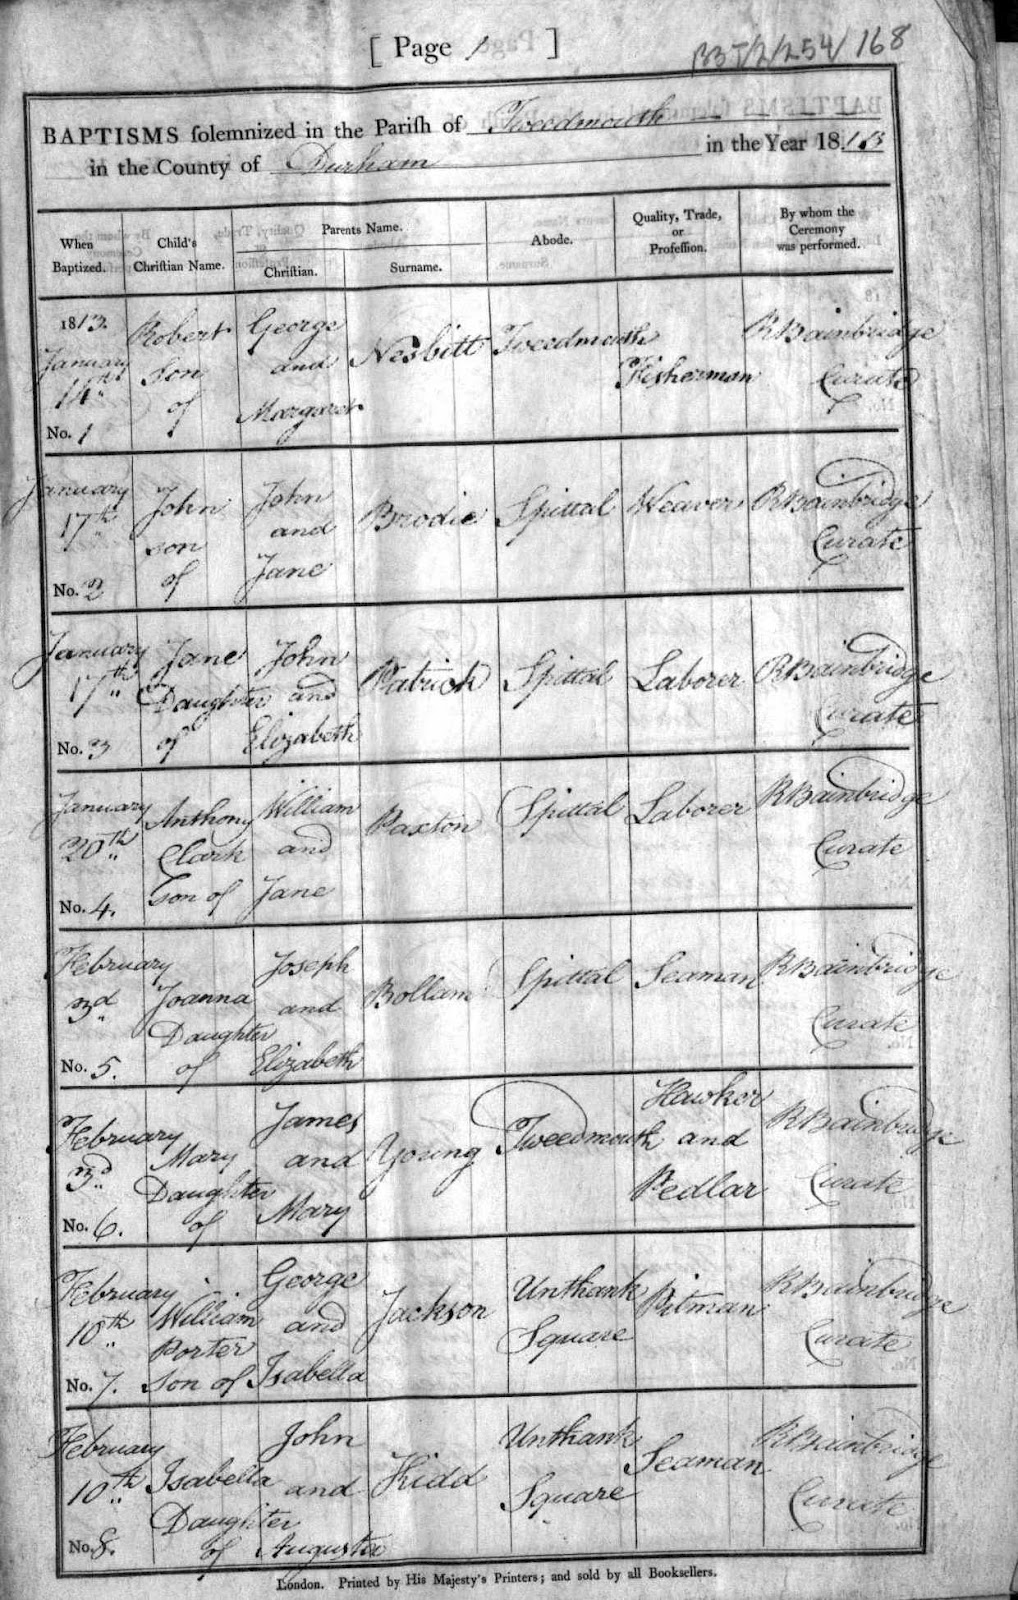 [ Page 1 ]
168
BAPTISMS solemnized in the Parish of Tweedmouth
in the County of Durham in the Year 1813
When Baptized. Child's Christian Name. Parents Name. Christian. Surname. Abode. Quality, Trade, or Profession. By whom the Ceremony was performed.
1813. January 14th No. 1 Robert Son of George and Margaret Nesbitt Tweedmouth Fisherman R Bainbridge Curate
January 17th No. 2 John son of John and Jane Brodie Spittal Weaver R Bainbridge Curate
January 17th No. 3 Jane Daughter of John and Elizabeth Patrick Spittal Laborer R Bainbridge Curate
January 20th No. 4. Anthony Clark Son of William and Jane Paxton Spittal Laborer R Bainbridge Curate
February 3d No. 5. Joanna Daughter of Joseph and Elizabeth Bollam Spittal Seaman R Bainbridge Curate
February 3d No. 6. Mary Daughter of James and Mary Young Tweedmouth Hawker and Pedlar R Bainbridge Curate
February 10th No. 7. William Porter Son of George and Isabella Jackson Unthank Square Pitman R Bainbridge Curate
February 10th No. 8. Isabella Daughter of John and Augusta Kidd Unthank Square Seaman R Bainbridge Curate
London. Printed by His Majesty's Printers; and sold by all Booksellers.